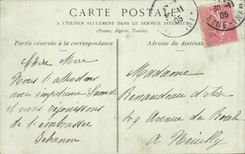 CARTE POSTALE
A UTILISER SEULEMENT DANS LE SERVICE INTÉRIEUR
(France, Algérie, Tunisie)
Partie réservée à la correspondance
Adresse du destinataire
Chère Mère
Nous t'attendons
avec impatience Samedi
et nous réjouissons
de t'embrasser
Jehanne
Madame
Avenue du Roule
à Neuilly